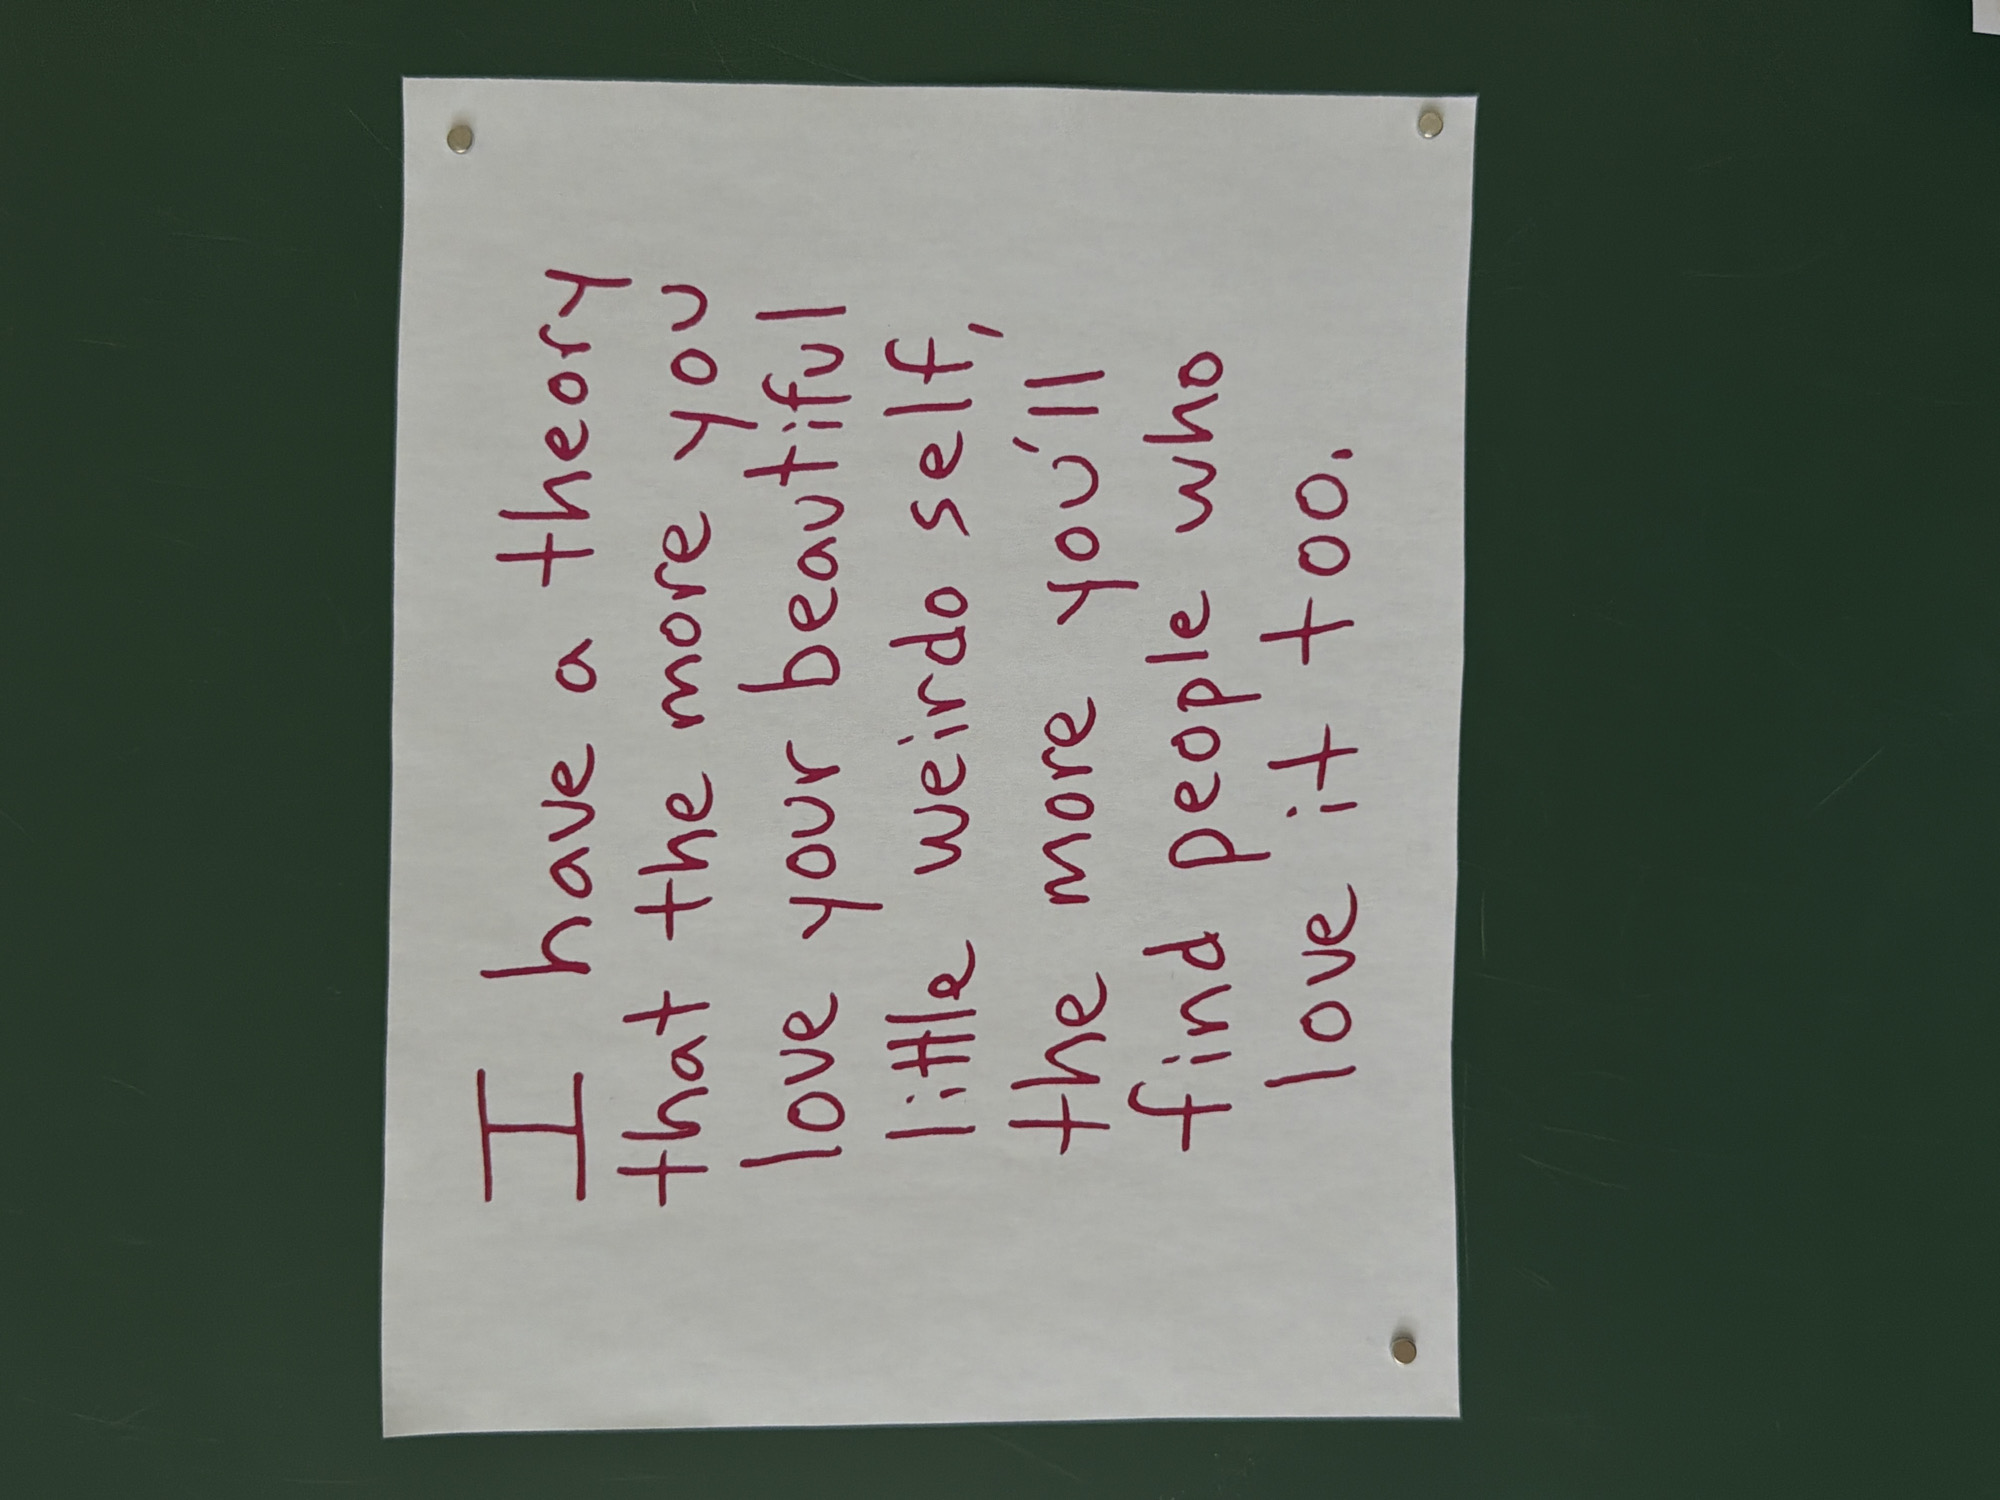 I have a theory
that the more you
love your beautiful
little weirdo self,
the more you'll
find people who
love it too.